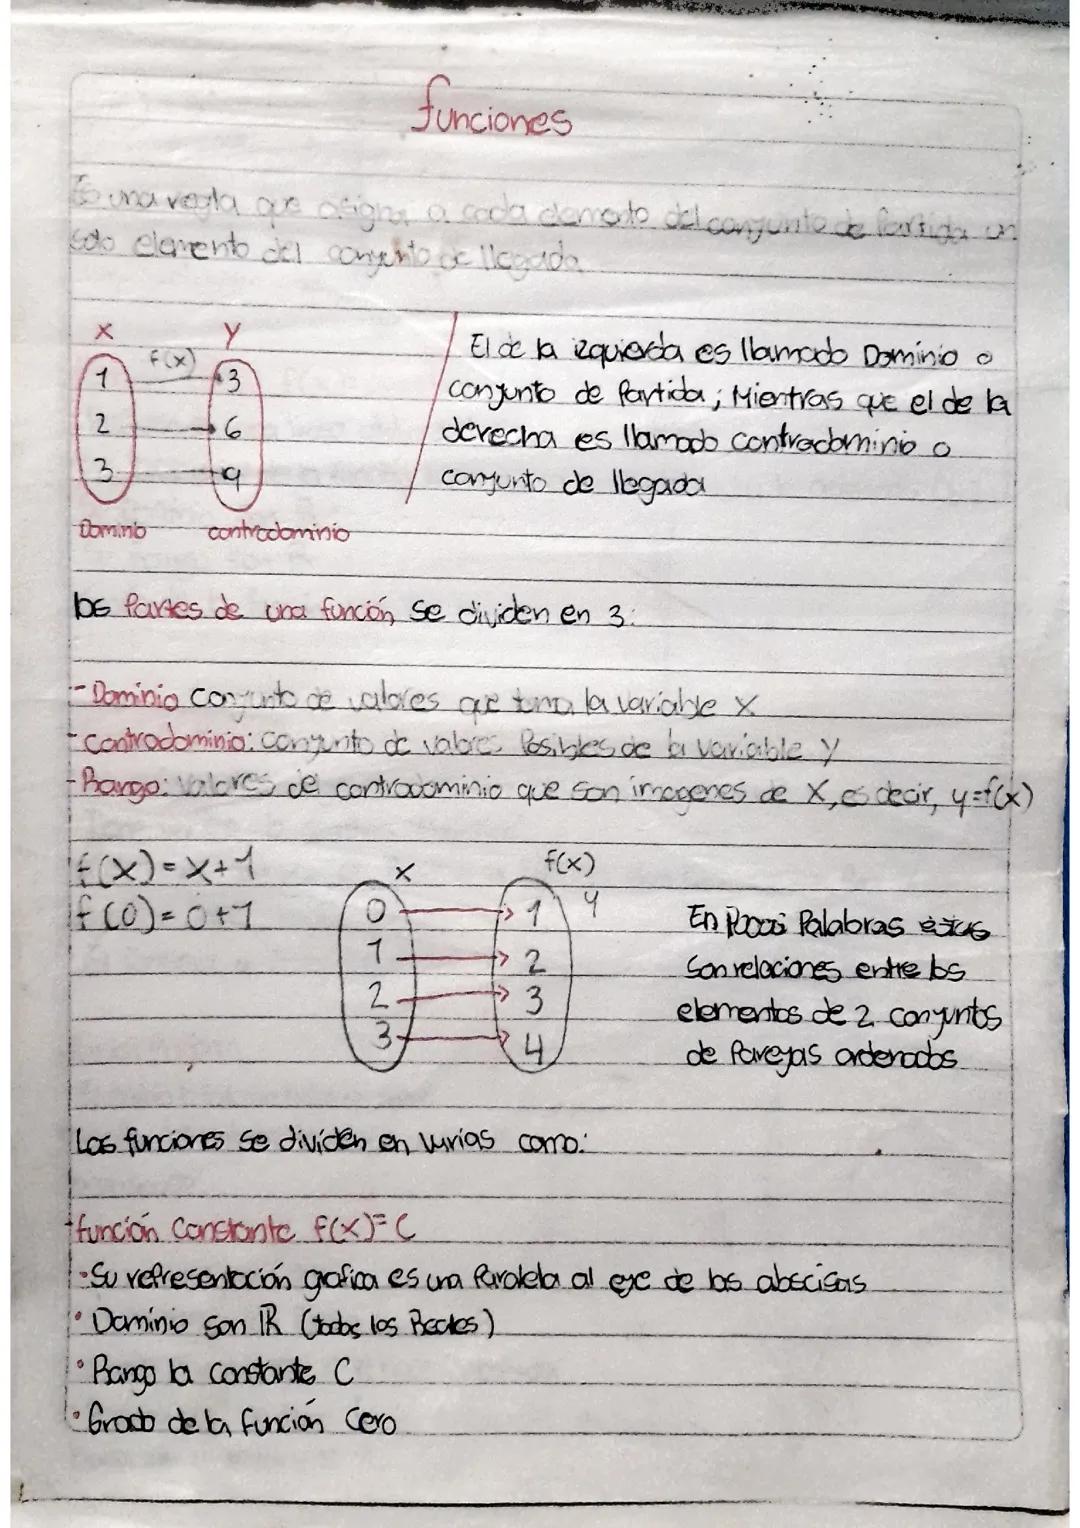 funciones
Es una regla que asigna a cada elemento del conjunto de Partida un
solo elemento del conjunto de llegada
X Y
f(x)
1 3
2 6
3 9
Dominio contradominio
El de la izquierda es llamado Dominio o
conjunto de Partida; Mientras que el de la
derecha es llamado contradominio o
conjunto de llegada
los Partes de una función se dividen en 3:
- Dominio conjunto de valores que toma la variable X
- contradominio: conjunto de valores Posibles de la variable y
- Rango: valores del contradominio que son imagenes de X, es decir, y=f(x)
f(x)=x+1
f(0)=0+1
x f(x)
y
0 1
1 2
2 3
3 4
En Pocas Palabras estas
Son relaciones entre los
elementos de 2 conjuntos
de Parejas ordenados
Las funciones se dividen en varias como:
función Constante f(x)=C
• Su representación grafica es una Paralela al eje de las abscisas
• Dominio son IR (todos los Reales)
• Rango la constante C
• Grado de la función Cero